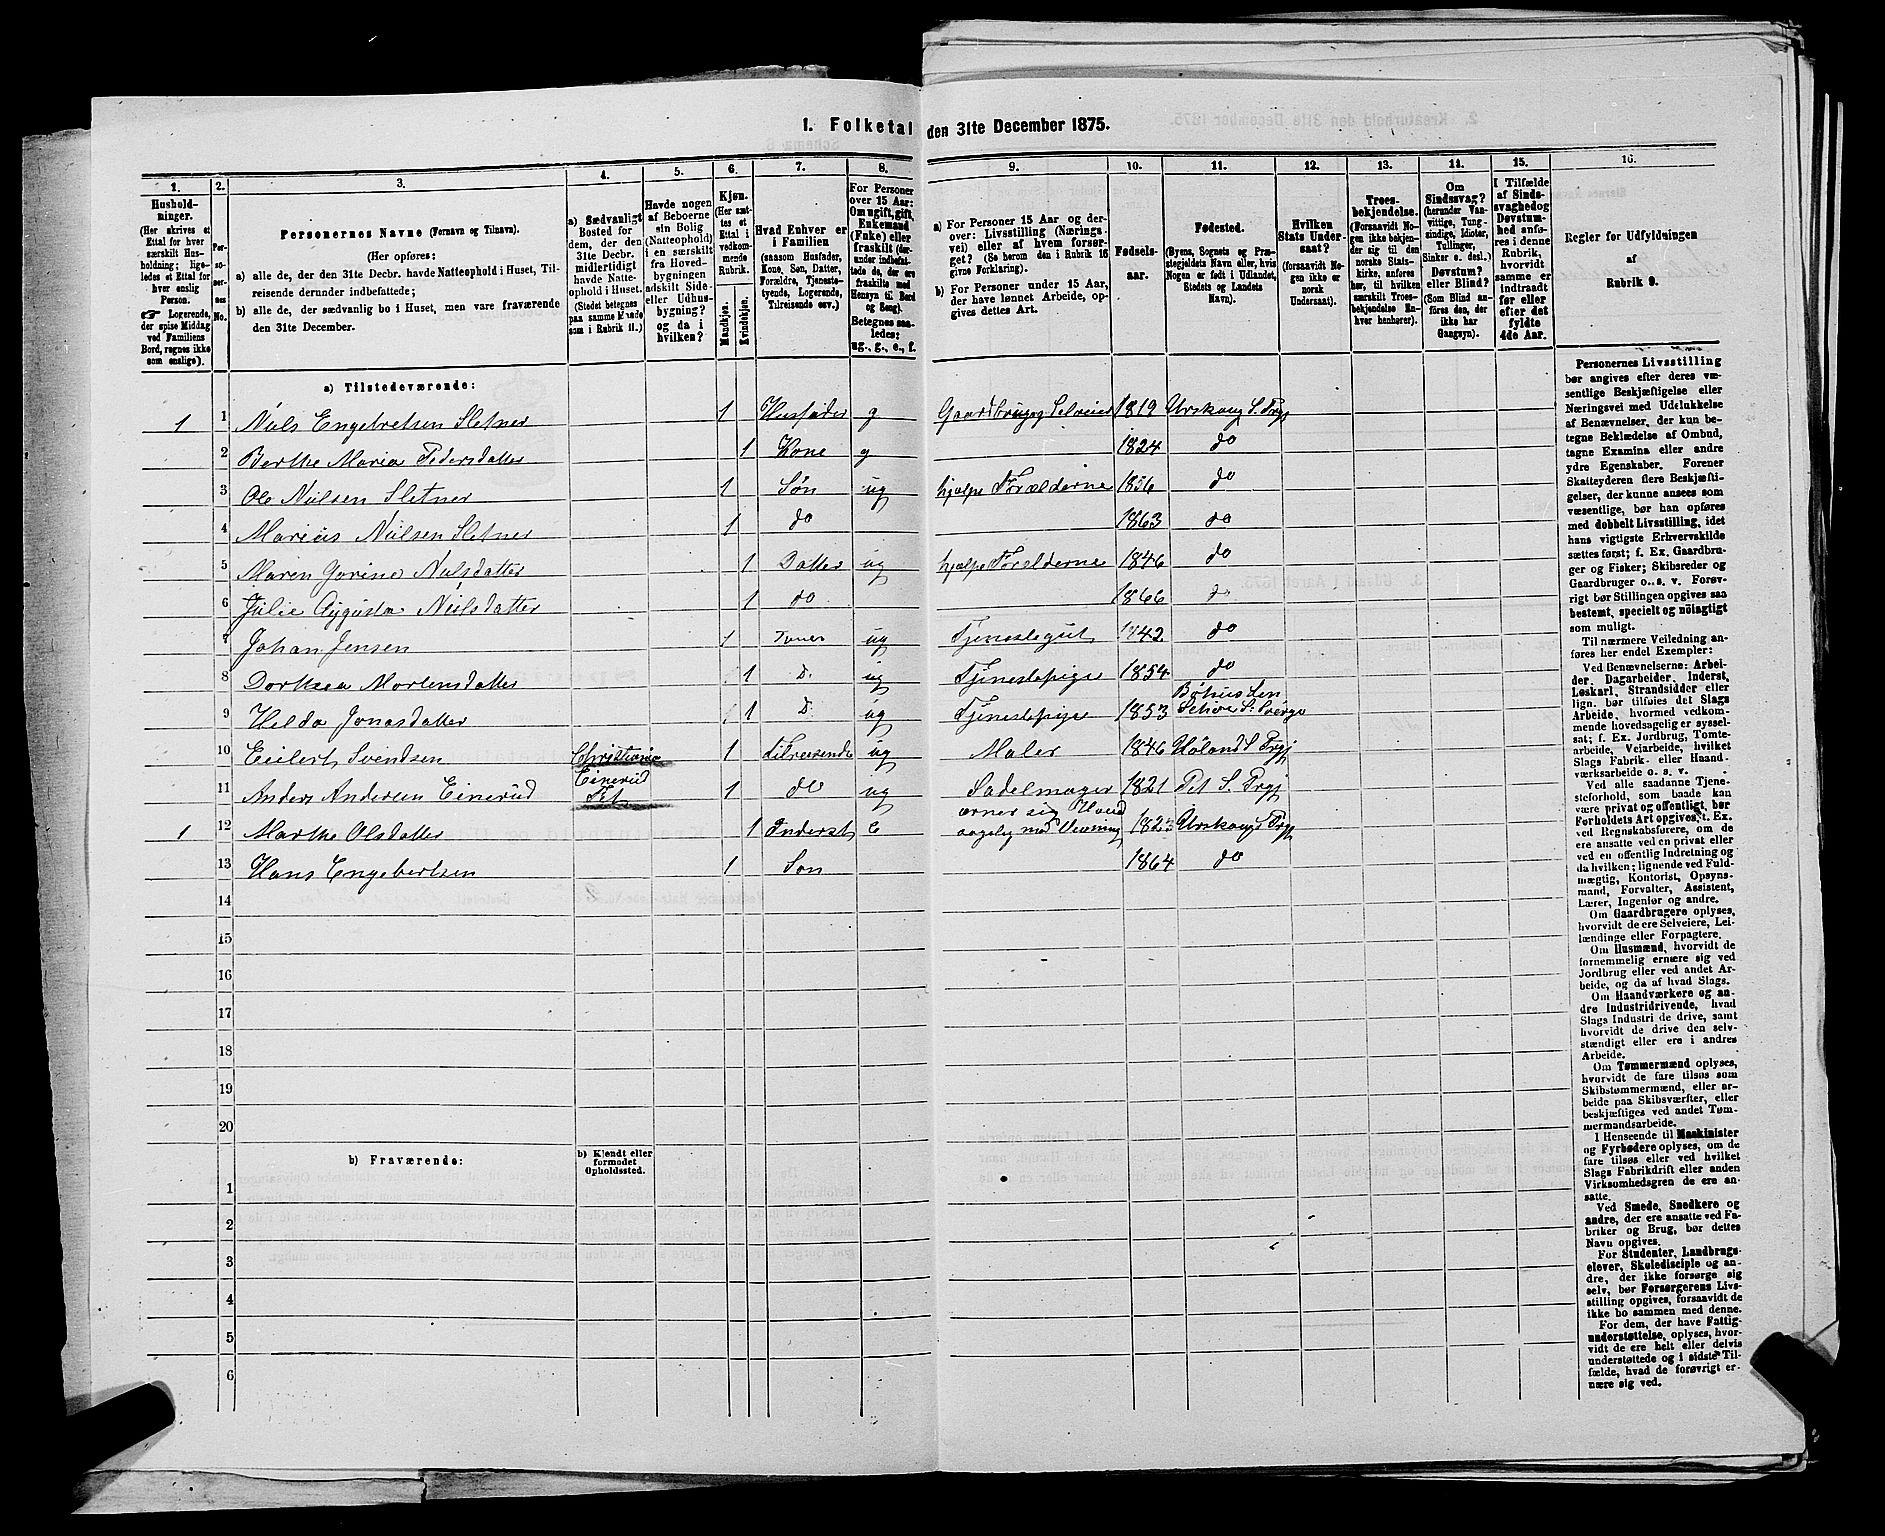 1. Folketal den 31te December 1875.
1. 2. 3. 4. 5. 6. 7. 8. 9. 10. 11. 12. 13. 14. 15. 16.
Hushold-
ninger.
(Her skrives et
Ettal for hver
særskilt Hus-
holdning; lige-
ledes et Ettal for
hver enslig
Person.
☞ Logerende,
der spise Middag
ved Familiens
Bord, regnes ikke
som enslige).
Per-
so-
ner-
nes
No.
Personernes Navne (Fornavn og Tilnavn).
(Her opføres:
a) alle de, der den 31te Decbr. havde Natteophold i Huset, Til-
reisende derunder indbefattede;
b) alle de, der sædvanlig bo i Huset, men vare fraværende
den 31te December.
a) Sædvanligt
Bosted for
dem, der den
31te Decbr.
midlertidigt
havde Natte-
ophold i Huset.
(Stedet betegnes
paa samme Maade
som i Rubrik 11.)
Havde nogen
af Beboerne
sin Bolig
(Natteophold)
i en særskilt
fra Hoved-
bygningen
adskilt Side-
eller Udhus-
bygning?
og da i
hvilken?
Kjøn.
(Her sæt-
tes et
Ettal i
vedkom-
mende
Rubrik.
Mandkjøn.
Kvindekjøn.
Hvad Enhver er
i Familien
(saasom Husfader,
Kone, Søn, Datter,
Forældre, Tjeneste-
tyende, Logerende,
Tilreisende osv.)
For Personer
over 15 Aar:
Om ugift, gift,
Enkemand
(Enke) eller
fraskilt (der-
under indbefat-
tede de, der ere
fraskilte med
Hensyn til Bord
og Seng).
Betegnes saa-
ledes:
ug., g., e., f.
a) For Personer 15 Aar og der-
over: Livsstilling (Nærings-
vei) eller af hvem forsør-
get? (Se herom den i Rubrik 16
givne Forklaring).
b) For Personer under 15 Aar,
der have lønnet Arbeide, op-
gives dettes Art.
Fødsels-
aar.
Fødested.
(Byens, Sognets og Præ-
stegjeldets Navn eller, hvis
Nogen er født i Udlandet,
Stedets og Landets
Navn).
Hvilken
Stats Under-
saat?
(forsaavidt No-
gen ikke er
norsk
Undersaat).
Troes-
bekjendelse.
(Forsaavidt No-
gen ikke bekjen-
der sig til den
norske Stats-
kirke, anføres
her, til hvilken
særskilt Troes-
bekjendelse En-
hver henhører).
Om
Sindssvag?
(herunder Van-
vittige, Tung-
sindige, Idioter,
Tullinger,
Sinker o. desl.)
Døvstum?
eller Blind?
(Som Blind an-
føres den, der
ikke har
Gangsyn).
I Tilfælde
af Sinds-
svaghed og
Døvstum-
hed anfø-
res i denne
Rubrik,
hvorvidt
samme er
indtraadt
før eller
efter det
fyldte
4de Aar.
Regler for Udfyldningen
af
Rubrik 9.
a) Tilstedeværende:
1 1 Niels Engebretsen Sletner 1 Husfader g Gaardbrug og Selveier 1819 Urskoug S. Prgj
2 Berthe Maria Pedersdatter 1 Kone g 1824 do
3 Ole Nielsen Sletner 1 Søn ug hjælpe Forælderne 1856 do
4 Marius Nielsen Sletner 1 do 1863 do
5 Maren Gorine Nielsdatter 1 Datter ug hjælpe Forelderne 1846 do
6 Julie Augusta Nielsdatter 1 do 1866 do
7 Johan Jensen 1 ug Tjenestegut 1842 do
8 Dorthea Mortensdatter 1 D. ug Tjenestepige 1854 do
9 Helda Jonasdatter 1 D. ug Tjenestepige 1853 Bohus Len
S. Sverge
10 Eilert Svendsen Christiania 1 tilreisende ug Maler 1846 Høland S. Prgj
11 Anders Andersen Einerud Einerud
Fet 1 do ug Sadelmager 1821 Fet S. Prgj
1 12 Marthe Olsdatter 1 Inderst E ærner sig Hoved
sagelig med Vævning 1823 Urskoug S Prgj
13 Hans Engebretsen 1 Søn 1864 do
14
15
16
17
18
19
20
b) Fraværende:
b) Kjendt eller
formodet
Opholdssted.
1
2
3
4
5
6
Personernes Livsstilling
bør angives efter deres væ-
sentlige Beskjæftigelse eller
Næringsvei med Udelukkelse
af Benævnelser, der kun be-
tegne Beklædelse af Ombud,
tagne Examina eller andre
ydre Egenskaber. Forener
Skatteyderen flere Beskjæfti-
gelser, der kunne ansees som
væsentlige, bør han opføres
med dobbelt Livsstilling, idet
hans vigtigste Erhvervskilde
sættes først; f. Ex. Gaardbru-
ger og Fisker; Skibsreder og
Gaardbruger o. s. v. Forøv-
rigt bør Stillingen opgives saa
bestemt, specielt og nöiagtigt
som muligt.
Til nærmere Veiledning an-
føres her endel Exempler:
Ved Benævnelserne: Arbei-
der, Dagarbeider, Inderst,
Løskarl, Strandsidder eller
lign. bør tilføies det Slags
Arbeide, hvormed vedkom-
mende hovedsagelig er syssel-
sat; f. Ex. Jordbrug, Tomte-
arbeide, Veiarbeide, hvilket
Slags Fabrik- eller Haand-
værksarbeide o. s. v.
Ved alle saadanne Tjene-
steforhold, som baade kan
være privat og offentligt, bør
Forholdets Art opgives, f. Ex.
ved Regnskabsførere, om de
ere ansatte ved en privat eller
ved en offentlig Indretning og
da hvilken; lignende ved Fuld-
mægtig, Kontorist, Opsyns-
mand, Forvalter, Assistent,
Lærer, Ingeniør og andre.
Om Gaardbrugere oplyses,
hvorvidt de ere Selveiere, Lei-
lændinge eller Forpagtere.
Om Husmænd, hvorvidt de
fornemmelig ernære sig ved
Jordbrug eller ved andet Ar-
beide, og da af hvad Slags.
Om Haandværkere og an-
dre Industridrivende, hvad
Slags Industri de drive, samt
hvorvidt de drive den selv-
stændigt eller ere i andres
Arbeide.
Om Tømmermænd oplyses,
hvorvidt de fare tilsøs som
Skibstømmermænd, eller ar-
beide paa Skibsværfter, eller
beskjæftiges ved andet Tøm-
mermandsarbeide.
I Henseende til Maskinister
og Fyrbødere oplyses, om de
fare tilsøs eller ved hvilket
Slags Fabrikdrift eller anden
Virksomhedsgren de ere an-
satte.
Ved Smede, Snedkere og
andre, der ere ansatte ved Fa-
briker og Brug, bør dettes
Navn opgives.
For Studenter, Landbrugs-
elever, Skoledisciple og an-
dre, der ikke forsørge sig
selv, bør Forsørgerens Livs-
stilling opgives, forsaavidt de
ikke bo sammen med denne.
For dem, der have Fattig-
understøttelse, oplyses, hvor-
vidt de ere helt eller delvis
understøttede og i sidste Til-
fælde, hvad de forøvrigt er-
nære sig ved.